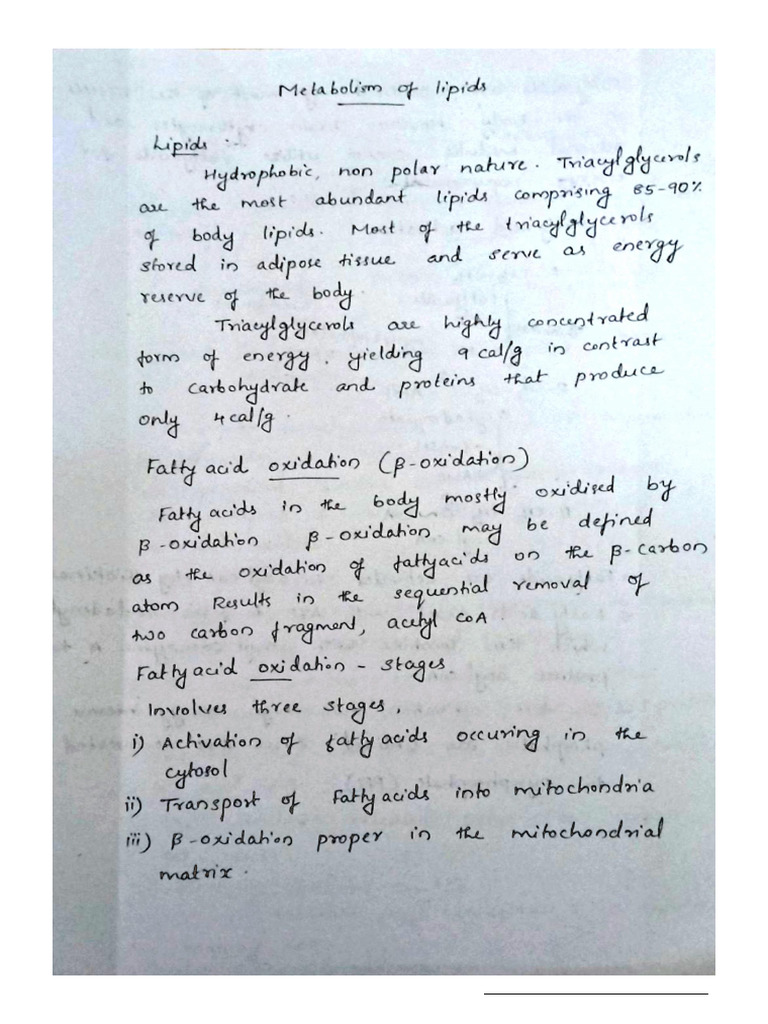 Metabolism of lipids
Lipids :-
Hydrophobic, non polar nature. Triacylglycerols
are the most abundant lipids comprising 85-90%
of body lipids. Most of the triacylglycerols
stored in adipose tissue and serve as energy
reserve of the body.
Triacylglycerols are highly concentrated
form of energy, yielding 9 cal/g in contrast
to carbohydrate and proteins that produce
only 4 cal/g.
Fatty acid oxidation (β-oxidation)
Fatty acids in the body mostly oxidised by
β-oxidation β-oxidation may be defined
as the oxidation of fatty acids on the β-carbon
atom Results in the sequential removal of
two carbon fragment, acetyl CoA.
Fatty acid oxidation - stages.
Involves three stages,
i) Activation of fatty acids occuring in the
cytosol
ii) Transport of Fatty acids into mitochondria
iii) β-oxidation proper in the mitochondrial
matrix.